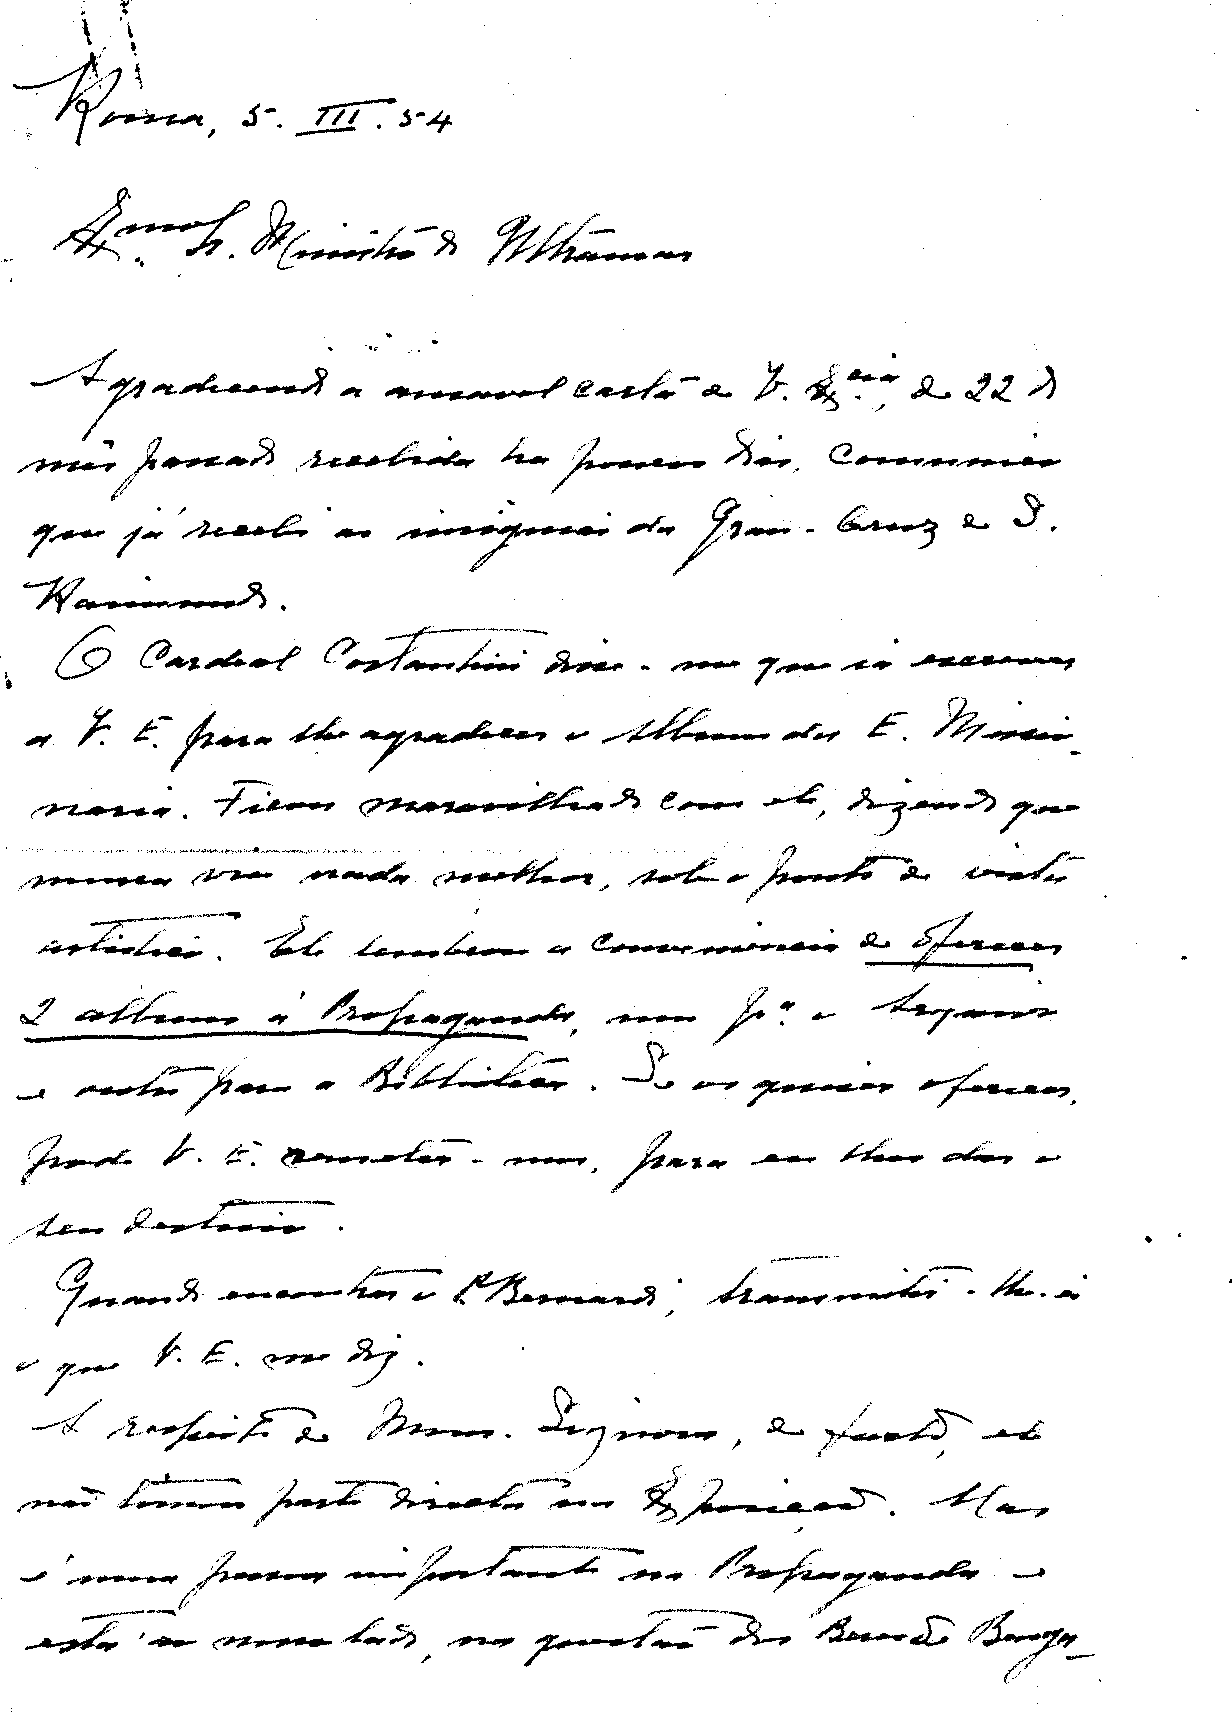 Roma, 5. III. 54
Exmo. Sr. Ministro do Ultramar
Agradecendo a amavel carta de V. Excia., de 22 do
mês passado recebida ha poucos dias, comunico
que já recebi as insignias da Gran-Cruz de S.
Raimundo.
O Cardeal Costantini disse-me que ia escrever
a V. E. para lhe agradecer o Album da E. Missio-
naria. Ficou maravilhado com ele, dizendo que
nunca viu nada melhor, sob o ponto de vista
artistico. Ele lembrou a conveniencia de oferecer
2 albums á Propaganda, um pa. o Arquivo
e outro para a Biblioteca. Se os quiser oferecer,
pode V. E. remeter-mos, para eu lhes dar o
seu destino.
Quando encontrar o P. Bernardi, transmitir-lhe-ei
o que V. E. me diz.
A respeito de Mons. Sigismondi, de facto, ele
não tomou parte directa na Exposição. Mas
é uma pessoa importante na Propaganda e
está ao nosso lado, na questão dos